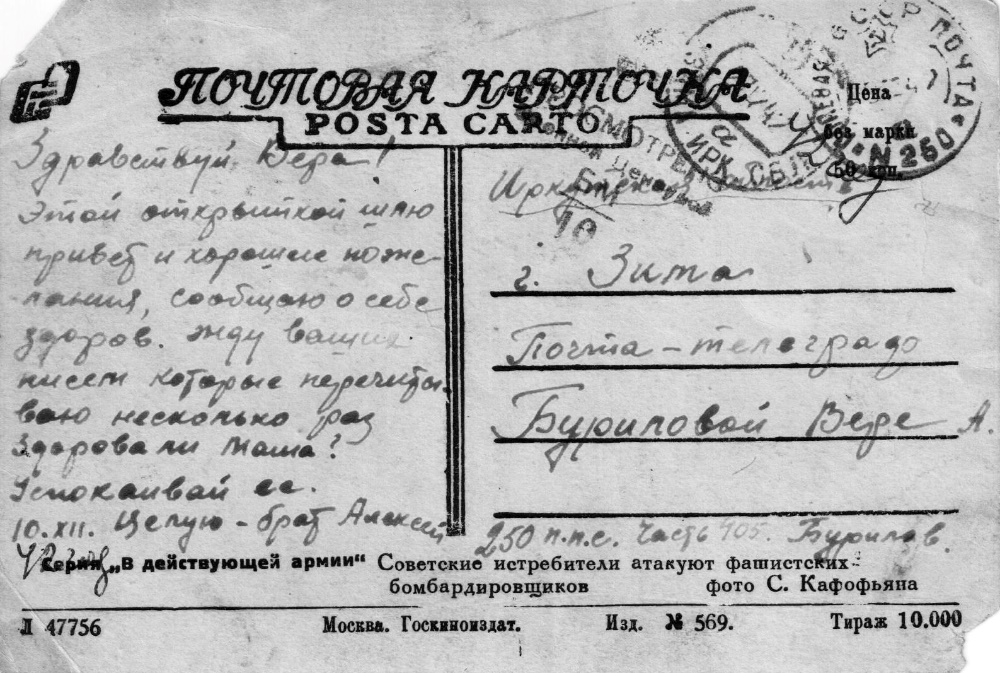 ПОЧТОВАЯ КАРТОЧКА
POSTA CARTO
Цена
без марки
50 коп.
СССР ПОЧТА
N 250
ИРК. ОБЛ
ПРОСМОТРЕНО
Военной Цензурой
БАМ
10
Здравствуй, Вера!
Этой открыткой шлю
привет и хорошие поже-
лания, сообщаю о себе
здоров. Жду ваших
писем которые перечиты-
ваю несколько раз
Здорова ли Маша?
Успокаивай ее.
10.XII. Целую – брат Алексей
Иркутская область
г. Зима
Почта – телеграф
Буриловой Вере А.
250 п.п.с. Часть 405. Бурилов.
Серия „В действующей армии“ Советские истребители атакуют фашистских
бомбардировщиков фото С. Кафофьяна
Л 47756 Москва. Госкиноиздат. Изд. № 569. Тираж 10.000